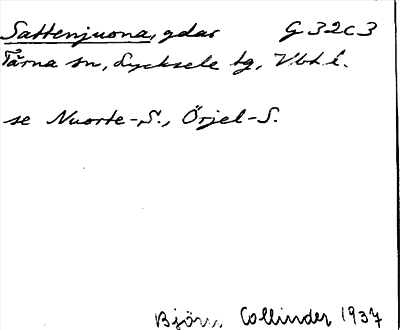 Sattenjuona, gdar G 32c3
Tärna sn, Lycksele tg, Vbtl.
se Nuorte-S., Örjel-S.
Björn Collinder 1937